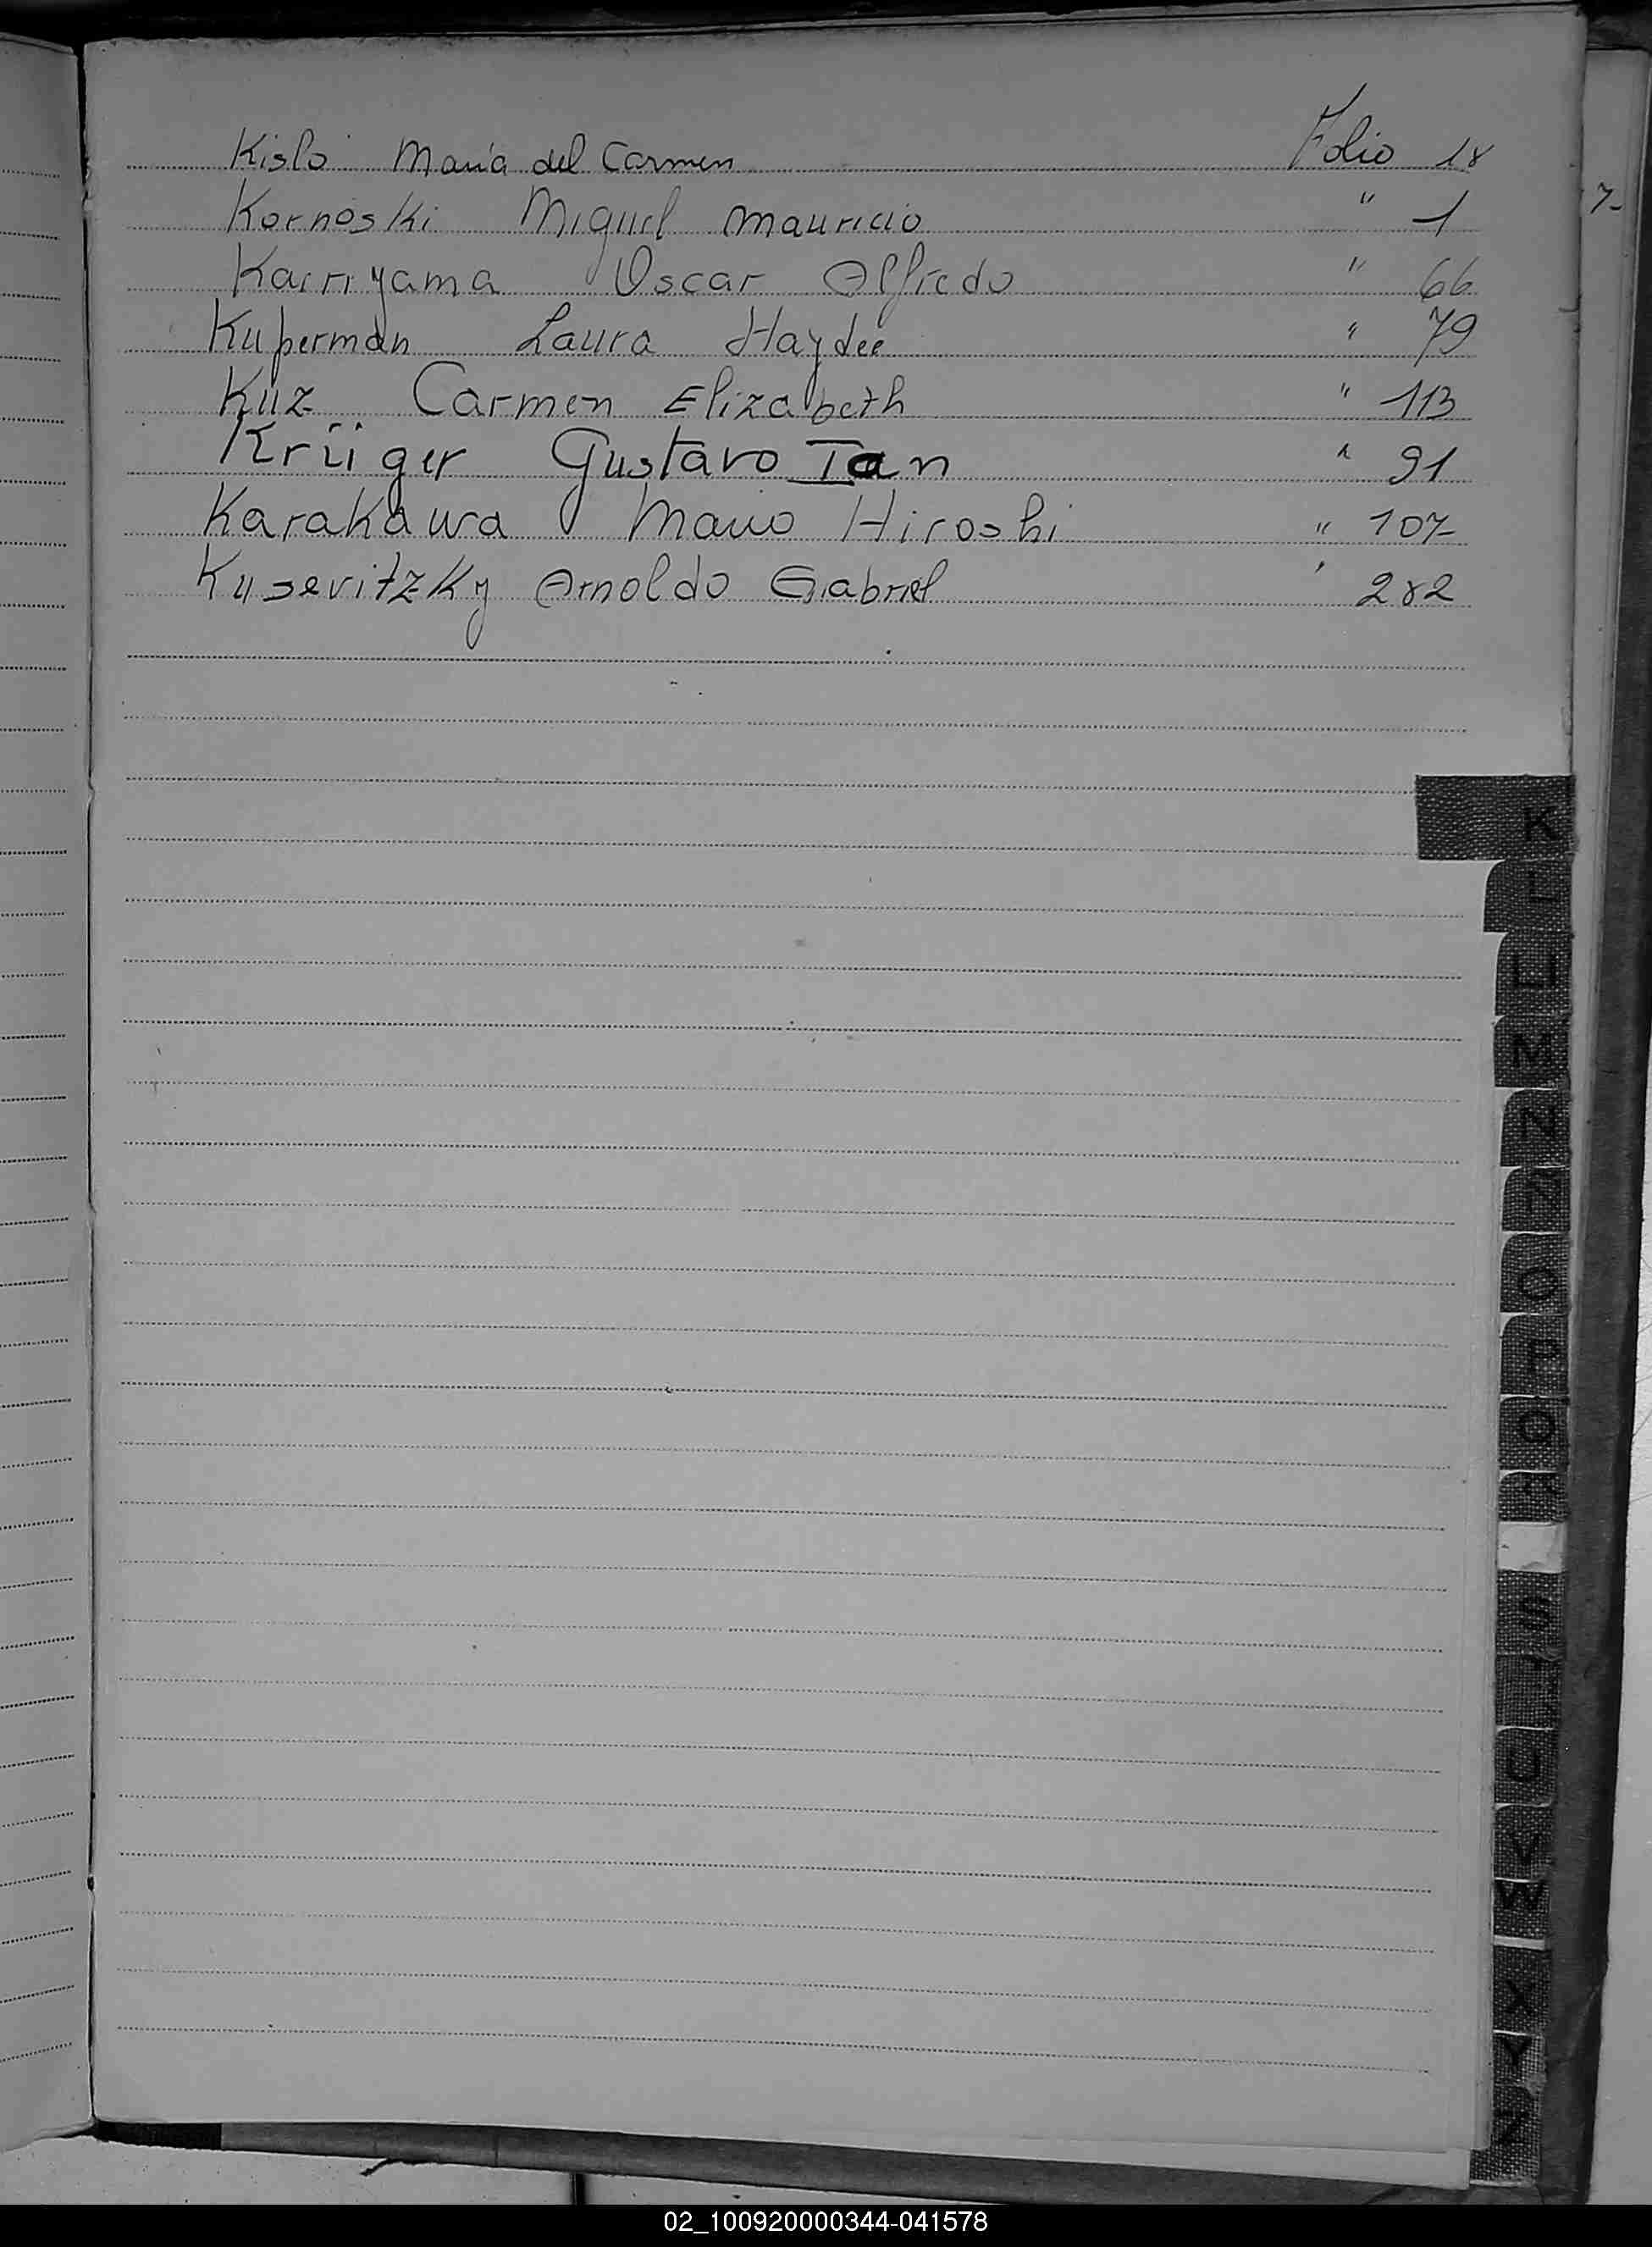 Kislo María del Carmen Folio 18
Kornoski Miguel Mauricio " 1
Kairiyama Oscar Alfredo " 66
Kuperman Laura Haydee " 79
Kuz Carmen Elizabeth " 113
Krüger Gustavo Ian " 91
Karakawa Mario Hiroshi " 107
Kusevitzky Arnoldo Gabriel " 282
7-
K
L
LL
M
N
Ñ
O
P
Q
S
U
V
W
X
Y
Z
02_100920000344-041578